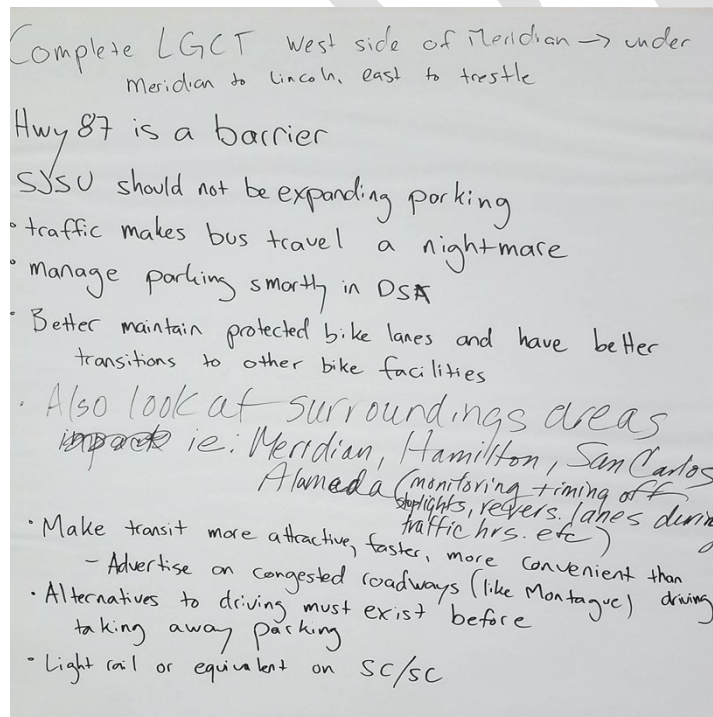 Complete LGCT west side of Meridian → under
Meridian to Lincoln, east to trestle
Hwy 87 is a barrier
SJSU should not be expanding parking
• traffic makes bus travel a nightmare
• manage parking smartly in DSA
• Better maintain protected bike lanes and have better
transitions to other bike facilities
• Also look at surroundings areas
ie: Meridian, Hamillton, San Carlos
Alameda (monitoring timing off
stoplights, revers. lanes during
traffic hrs. etc)
• Make transit more attractive, faster, more convenient than
driving
- Advertise on congested roadways (like Montague)
• Alternatives to driving must exist before
taking away parking
• Light rail or equivalent on SC/SC